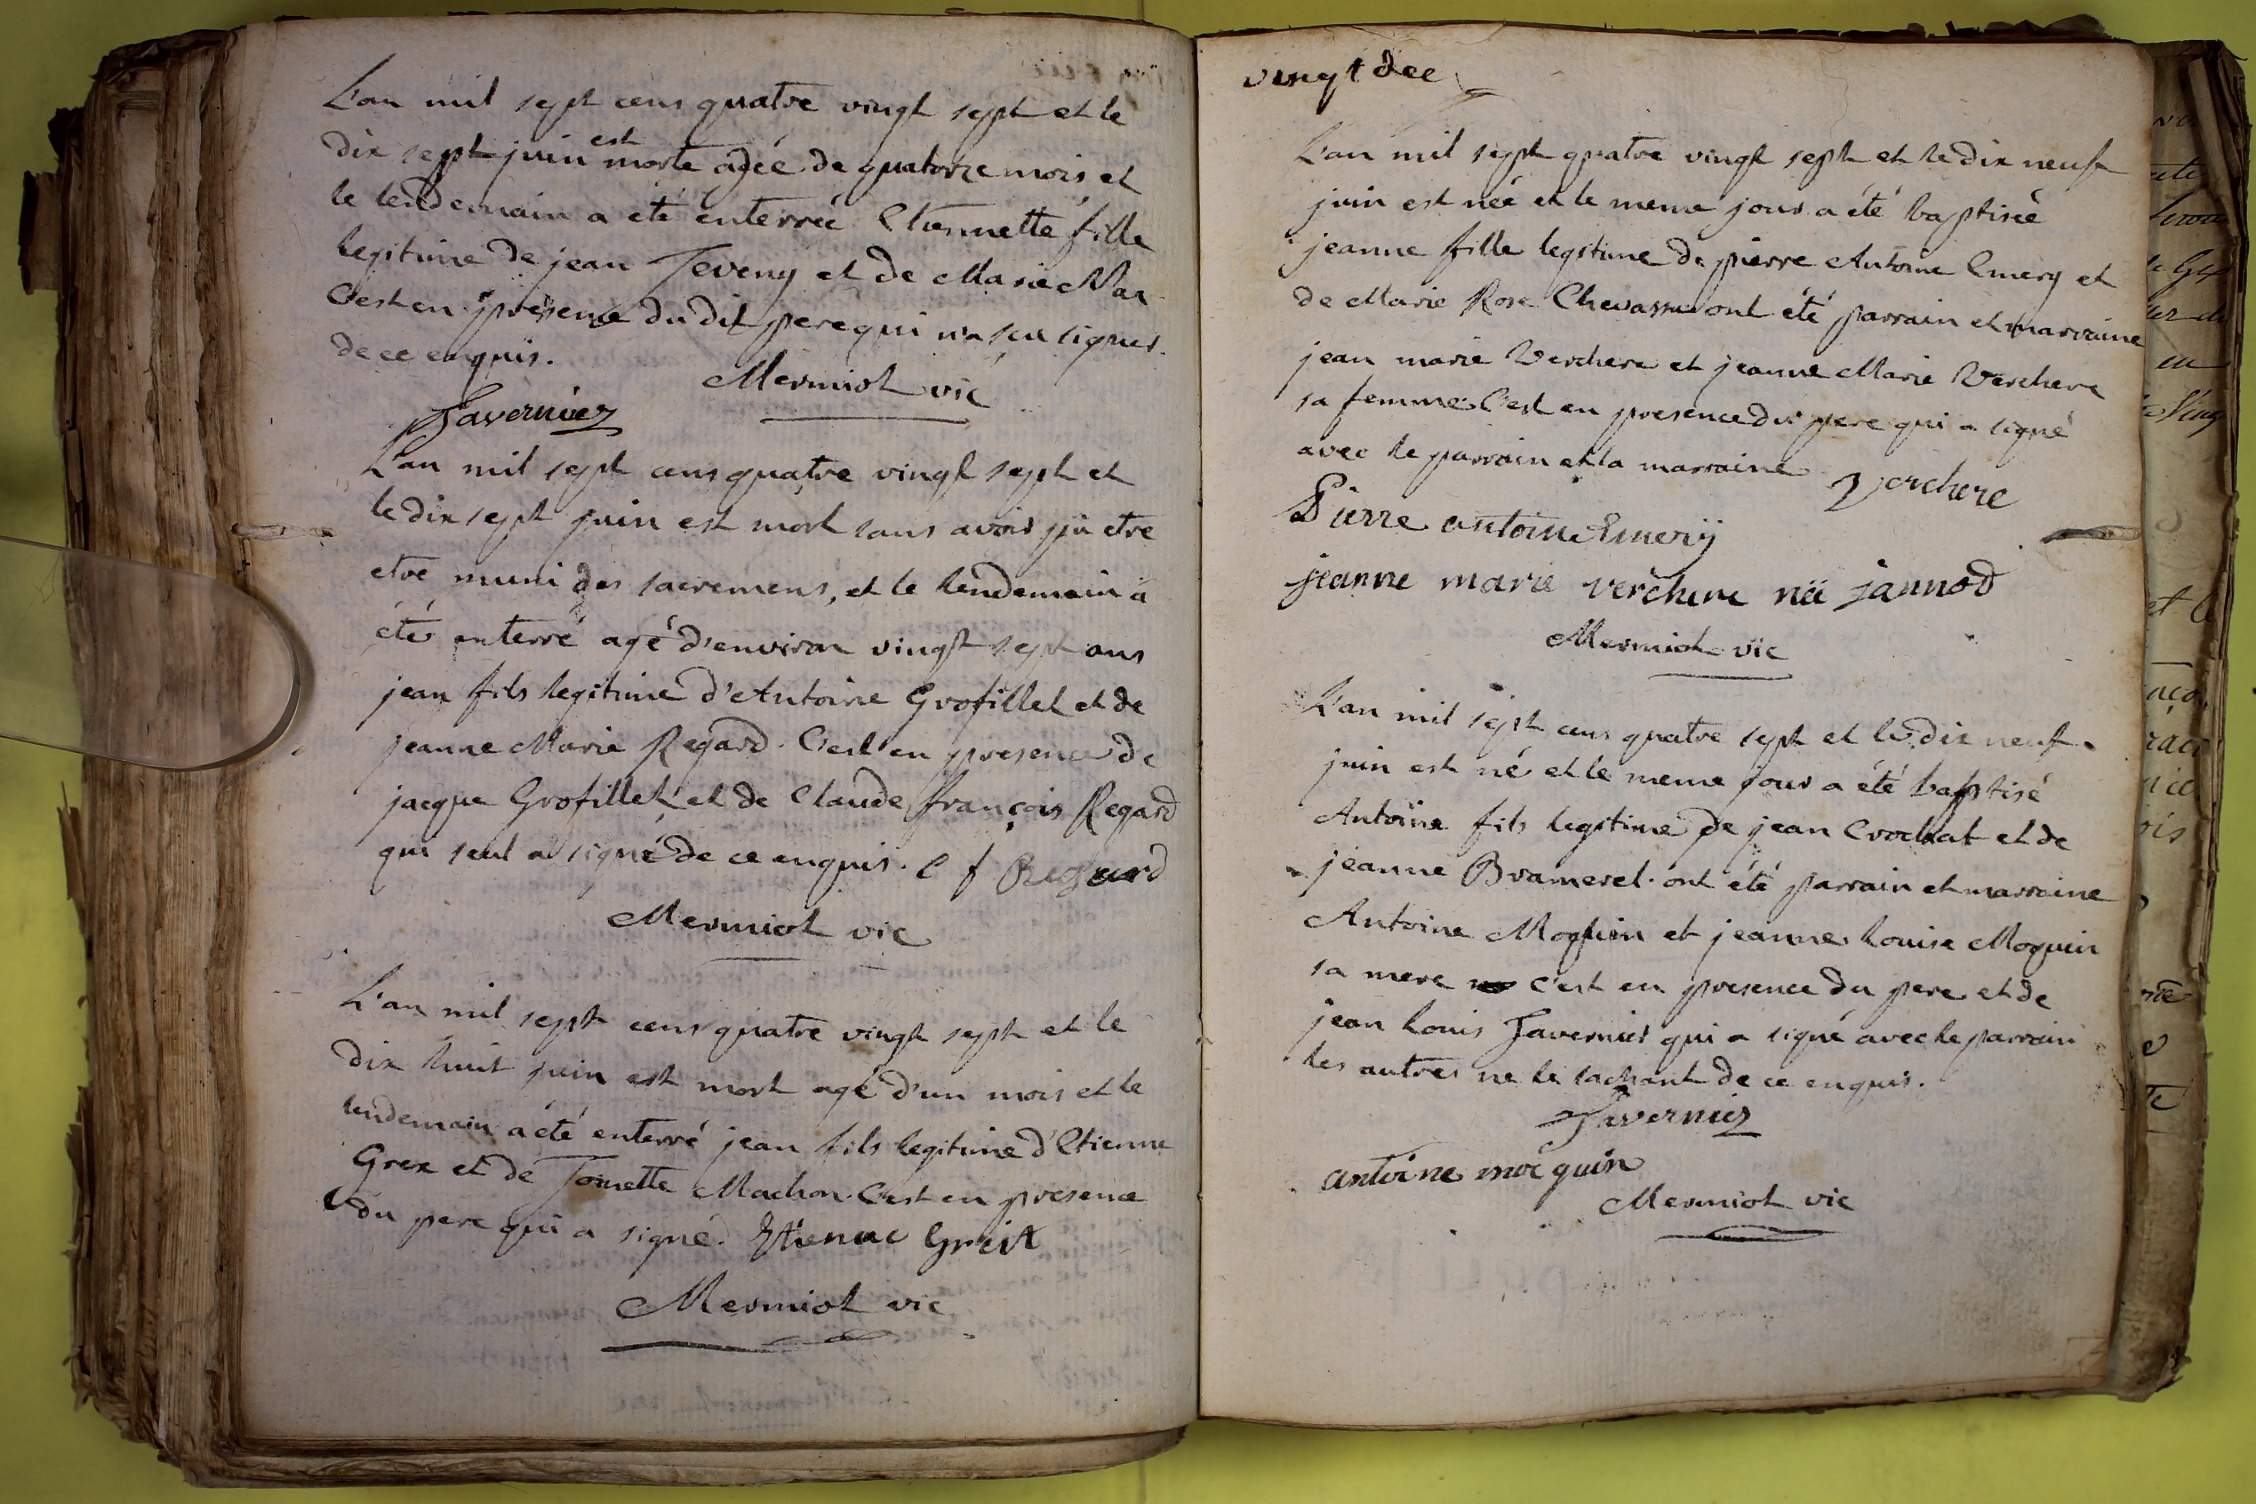 L'an mil sept cens quatre vingt sept et le
dix sept juin est morte agée de quatorze mois et
le lendemain a été enterrée Etiennette fille
legitime de jean Teveny et de Marie
C'est en presence du dit pere qui n'a sçu signer
de ce enquis.
Mermiot vic
Tavernier
L'an mil sept cens quatre vingt sept et
le dix sept juin est mort sans avoir pù etre
etre muni des sacremens, et le lendemain a
été enterré agé d'environ vingt sept ans
jean fils legitime d'Antoine Grofillet et de
jeanne Marie Regard. C'est en presence de
jacque Grofillet, et de Claude françois Regard
qui seul a signé de ce enquis. C f Regard
Mermiot vic
L'an mil sept cens quatre vingt sept et le
dix huit juin est mort agé d'un mois et le
lendemain a été enterré jean fils legitime d'Etienne
Grex et de Toinette Machon. C'est en presence
du pere qui a signé. Etienne Greix
Mermiot vic
vingt
L'an mil sept quatre vingt sept et le dix neuf
juin est née et le meme jour a été baptisée
jeanne fille legitime de pierre Antoine Emery et
de Marie Rose Chevassu ont été parrain et marraine
jean marie Verchere et jeanne Marie Verchere
sa femme. C'est en presence du pere qui a signé
avec le parrain et la marraine Verchere
Pierre antoine Emerÿ
jeanne marie verchere néé jannod
Mermiot vic
L'an mil sept cens quatre sept et le dix neuf
juin est né et le meme jour a été baptisé
Antoine fils legitime de jean Crochat et de
jeanne Bramerel. ont été parrain et marraine
Antoine Moquin et jeanne Louise Moquin
sa mere c'est en presence du pere et de
jean Louis Tavernier qui a signé avec le parrain
les autres ne le sachant de ce enquis.
Tavernier
antoine mocquin
Mermiot vic